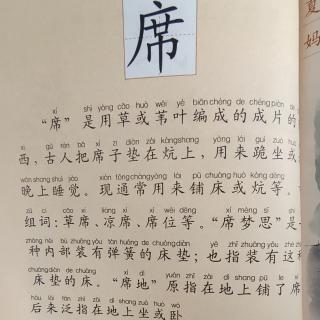 席
夏
妈
xí shì yòng cǎo huò wěi yè biān chéng de chéng piàn de
“席”是用草或苇叶编成的成片的
xī gǔ rén bǎ xí zi diàn zài kàng shang yòng lái guì zuò huò
西,古人把席子垫在炕上,用来跪坐或
wǎn shang shuì jiào xiàn tōng cháng yòng lái pū chuáng huò kàng děng
晚上睡觉。现通常用来铺床或炕等。
zǔ cí cǎo xí liáng xí xí wèi děng xí mèng sī shì
组词:草席、凉席、席位等。“席梦思”是一
zhǒng nèi bù zhuāng yǒu tán huáng de chuáng diàn yě zhǐ zhuāng yǒu zhè
种内部装有弹簧的床垫;也指装有这种
chuáng diàn de chuáng xí dì yuán zhǐ zài dì shang pū le xí
床垫的床。“席地”原指在地上铺了席
hòu lái fàn zhǐ zài dì shang zuò huò wò
后来泛指在地上坐或卧